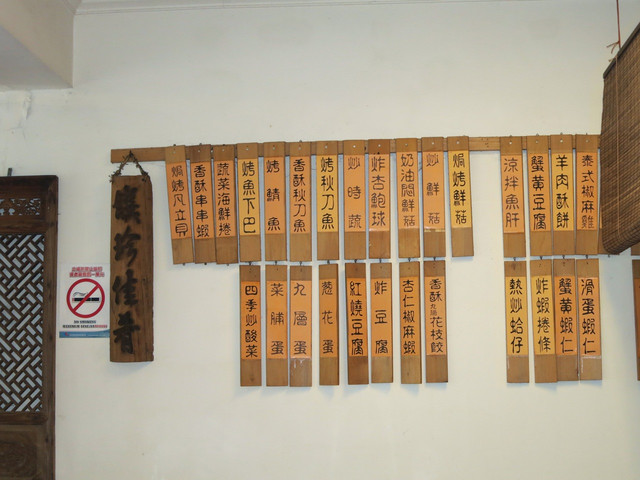 泰式椒麻雞
羊肉酥餅
蟹黃豆腐
涼拌魚肝
焗烤鮮菇
炒鮮菇
奶油悶鮮菇
炸杏鮑球
炒時蔬
烤秋刀魚
香酥秋刀魚
烤鯖魚
烤魚下巴
蔬菜海鮮捲
香酥串串蝦
焗烤凡立貝
滑蛋蝦仁
蟹黃蝦仁
炸蝦捲條
熱炒蛤仔
香酥花枝餃
杏仁椒麻蝦
炸豆腐
紅燒豆腐
蔥花蛋
九層蛋
菜脯蛋
四季炒酸菜
饌珍佳肴